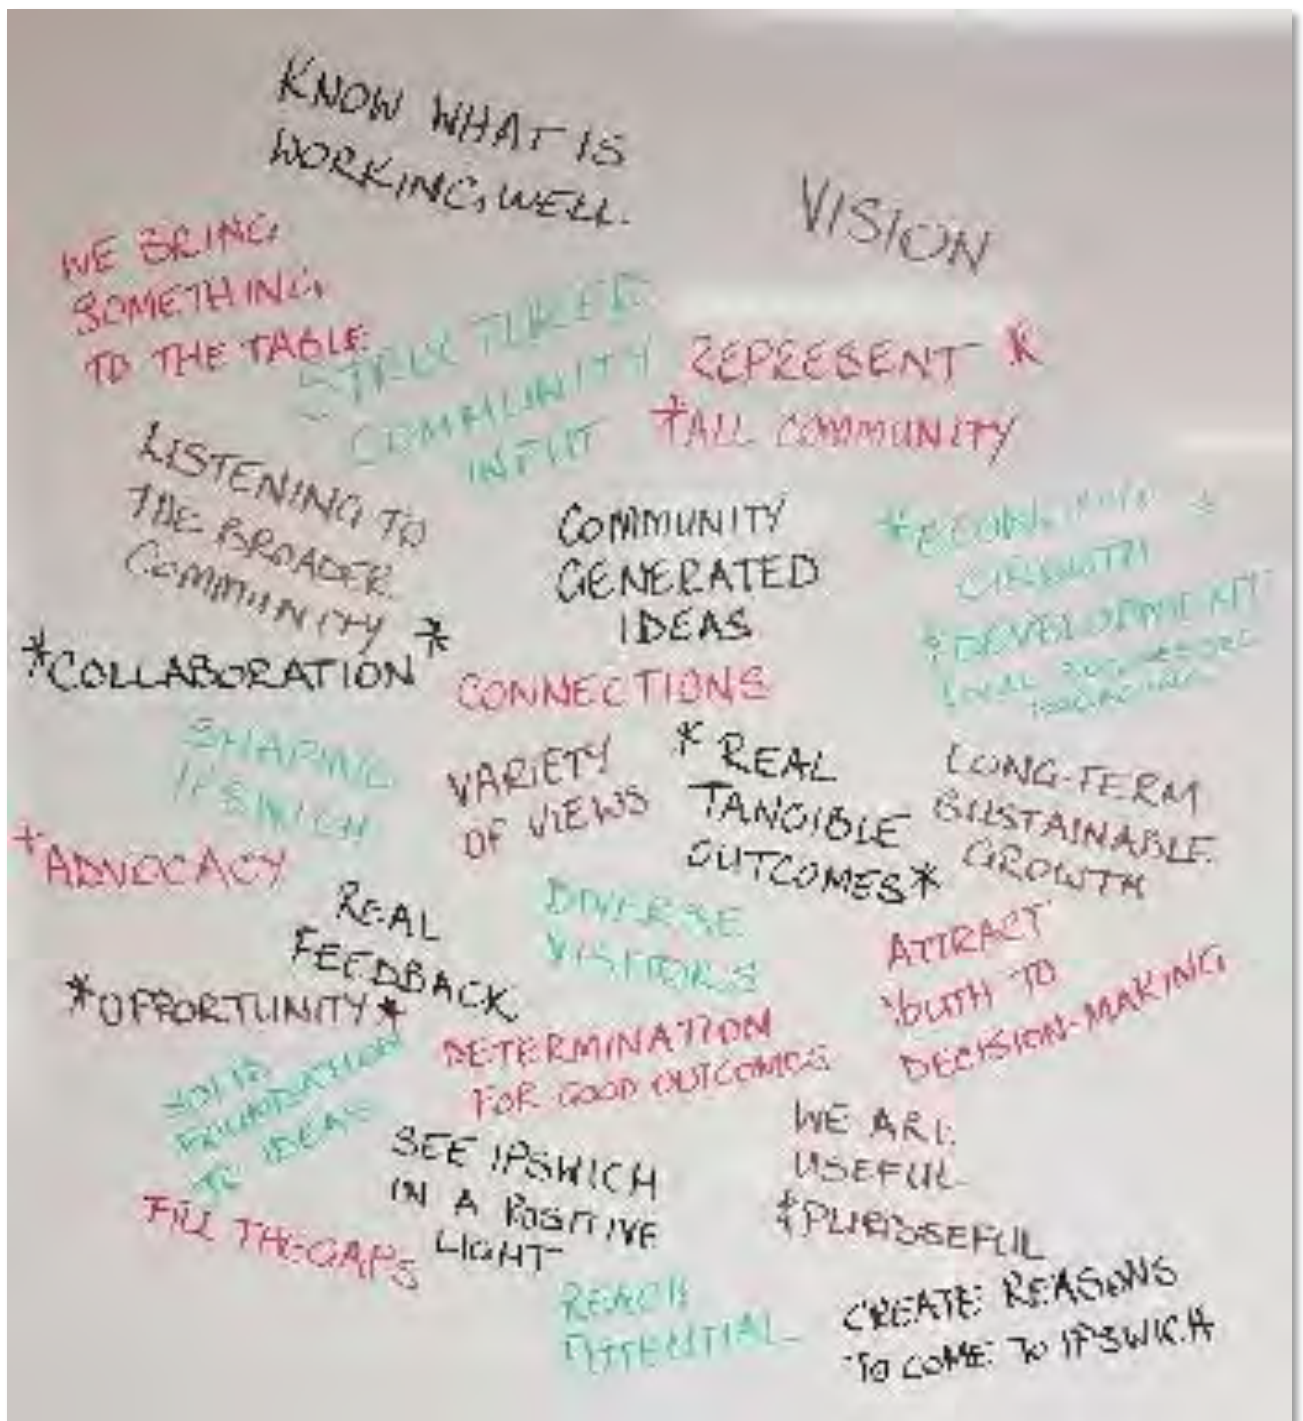 KNOW WHAT IS
WORKING WELL.
VISION
WE BRING
SOMETHING
TO THE TABLE
STRUCTURED
COMMUNITY
INPUT
REPRESENT *
*ALL COMMUNITY
LISTENING TO
THE BROADER
COMMUNITY
COMMUNITY
GENERATED
IDEAS
*ECONOMIC *
GROWTH
*DEVELOPMENT
LOCAL
*COLLABORATION*
CONNECTIONS
SHAPING
IPSWICH
VARIETY
OF VIEWS
* REAL
TANGIBLE
OUTCOMES*
LONG-TERM
SUSTAINABLE
GROWTH
*ADVOCACY
REAL
FEEDBACK
DIVERSE
VISITORS
ATTRACT
YOUTH TO
DECISION-MAKING
*OPPORTUNITY*
DETERMINATION
FOR GOOD OUTCOMES
SOLID
FOUNDATION
TO IDEAS
SEE IPSWICH
IN A POSITIVE
LIGHT
WE ARE
USEFUL
*PURPOSEFUL
FILL THE GAPS
REACH
POTENTIAL
CREATE REASONS
TO COME TO IPSWICH